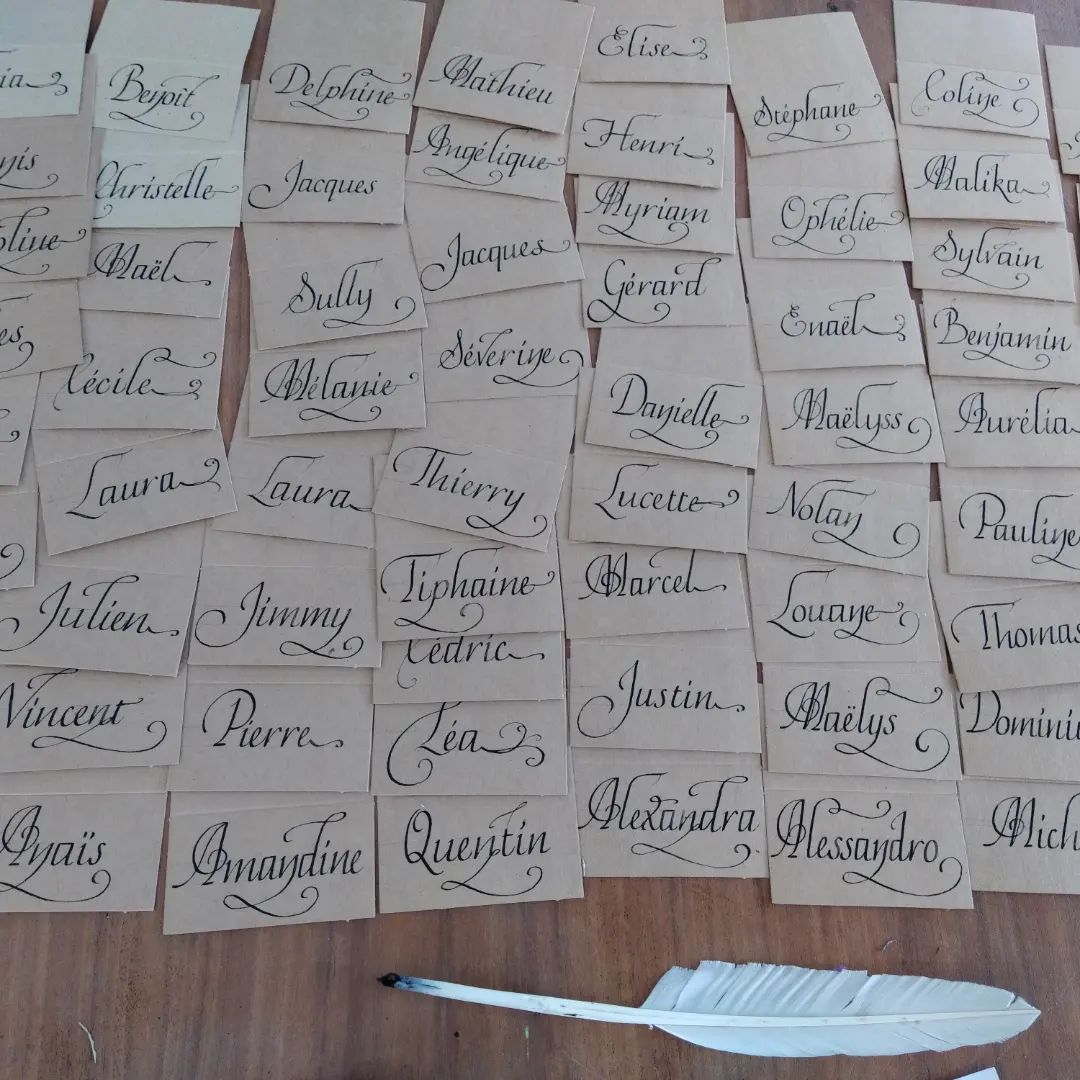 Benoît
Christelle
Maël
Cécile
Laura
Julien
Vincent
Anaïs
Delphine
Jacques
Sully
Mélanie
Laura
Jimmy
Pierre
Amandine
Mathieu
Angélique
Jacques
Séverine
Thierry
Tiphaine
Cédric
Léa
Quentin
Elise
Henri
Myriam
Gérard
Danielle
Lucette
Marcel
Justin
Alexandra
Stéphane
Ophélie
Enaël
Maëlyss
Nolan
Louane
Maëlys
Alessandro
Coline
Malika
Sylvain
Benjamin
Aurélia
Pauline
Thomas
Domini
Mich